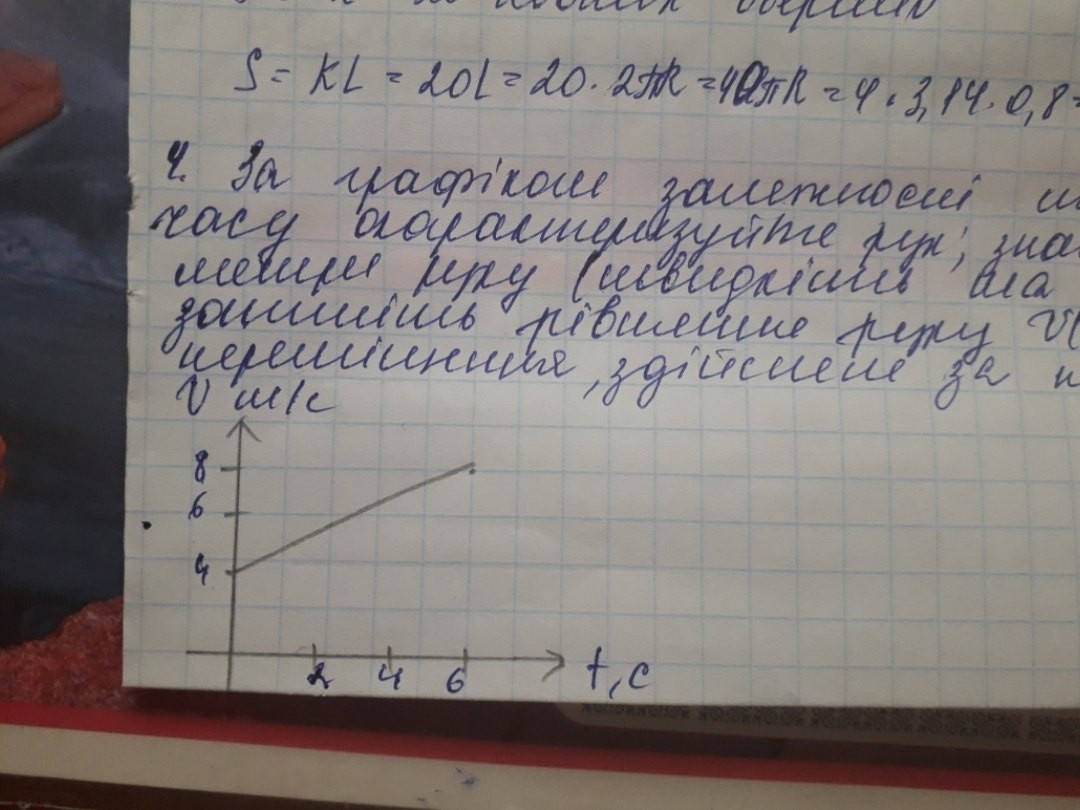 S = KL = 20L = 20 · 2πR = 40πR = 4 · 3,14 · 0,8 =
4. За графіком залежності
часу охарактеризуйте рух; зна
метри руху (швидкість та
запишіть рівняння руху V(
переміщення, здійснене за
V м/с
8
6
4
2 4 6 t, c